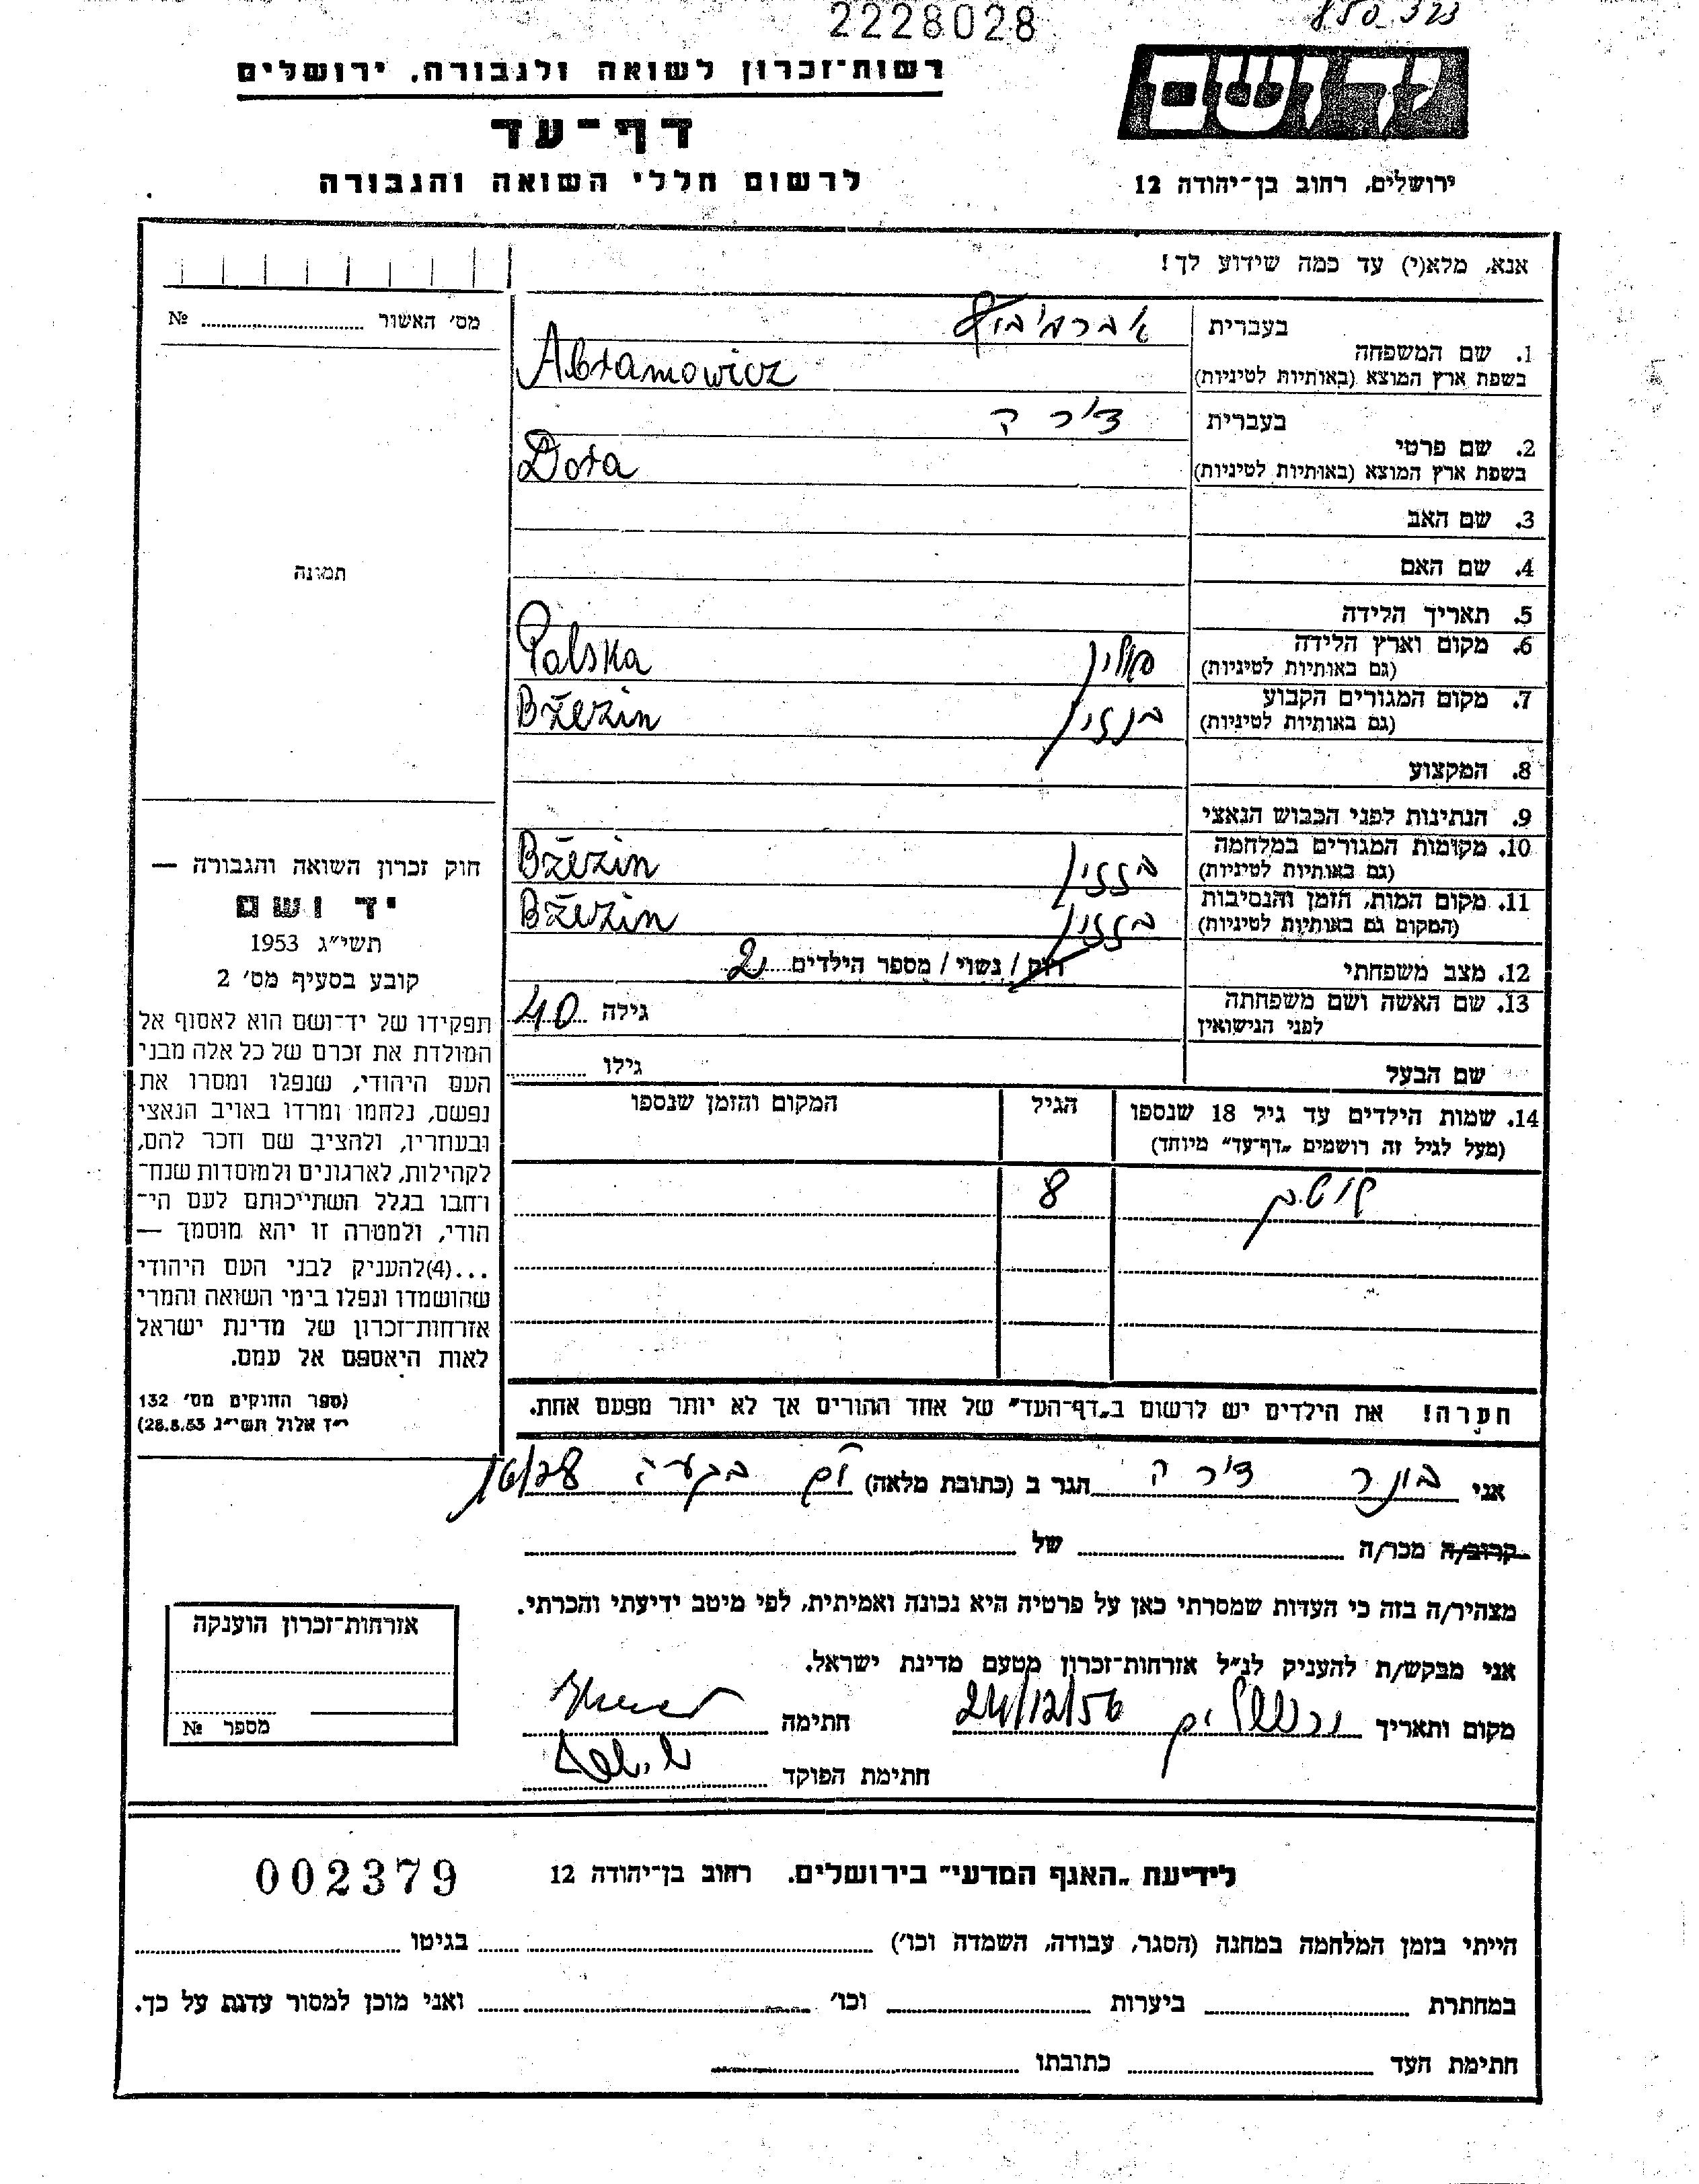 2228028
רשות־זכרון לשואה ולגבורה, ירושלים
דף־עד
לרשום חללי השואה והגבורה
יד ושם
ירושלים, רחוב בן־יהודה 12
אנא, מלא(י) עד כמה שידוע לך!
מס׳ האשור № 
1. שם המשפחה בעברית אברמיבוץ
בשפת ארץ המוצא (באותיות לטיניות) Abramowicz
2. שם פרטי בעברית דורה
בשפת ארץ המוצא (באותיות לטיניות) Dora
3. שם האב
4. שם האם
תמונה
5. תאריך הלידה
6. מקום וארץ הלידה
(גם באותיות לטיניות) פולין Polska
7. מקום המגורים הקבוע
(גם באותיות לטיניות) בזזין Bżezin
8. המקצוע
9. הנתינות לפני הכבוש הנאצי
10. מקומות המגורים במלחמה
(גם באותיות לטיניות) בזזין Bżezin
11. מקום המות, הזמן והנסיבות
(המקום גם באותיות לטיניות) בזזין Bżezin
12. מצב משפחתי רווק / נשוי / מספר הילדים 2
13. שם האשה ושם משפחתה
לפני הנישואין גילה 40
שם הבעל גילו
14. שמות הילדים עד גיל 18 שנספו הגיל המקום והזמן שנספו
(מעל לגיל זה רושמים „דף־עד״ מיוחד)
8
הערה! את הילדים יש לרשום ב„דף־העד״ של אחד ההורים אך לא יותר מפעם אחת.
חוק זכרון השואה והגבורה —
יד ושם
תשי״ג 1953
קובע בסעיף מס׳ 2
תפקידו של יד־ושם הוא לאסוף אל
המולדת את זכרם של כל אלה מבני
העם היהודי, שנפלו ומסרו את
נפשם, נלחמו ומרדו באויב הנאצי
ובעוזריו, ולהציב שם וזכר להם,
לקהילות, לארגונים ולמוסדות שנח־
רחבו בגלל השתייכותם לעם הי־
הודי, ולמטרה זו יהא מוסמך —
...(4)להעניק לבני העם היהודי
שהושמדו ונפלו בימי השואה והמרי
אזרחות־זכרון של מדינת ישראל
לאות היאספם אל עמם.
(ספר החוקים מס׳ 132
י״ז אלול תשי״ג 28.8.53)
אני בונר דורה הגר ב (כתובת מלאה) בקעה
קרוב/ה מכר/ה של
מצהיר/ה בזה כי העדות שמסרתי כאן על פרטיה היא נכונה ואמיתית, לפי מיטב ידיעתי והכרתי.
אני מבקש/ת להעניק לנ״ל אזרחות־זכרון מטעם מדינת ישראל.
מקום ותאריך ירושלים 24/12/56 חתימה
חתימת הפוקד
אזרחות־זכרון הוענקה
מספר №
לידיעת „האגף המדעי״ בירושלים. רחוב בן־יהודה 12
002379
הייתי בזמן המלחמה במחנה (הסגר, עבודה, השמדה וכו׳) בגיטו
במחתרת ביערות וכו׳ ואני מוכן למסור עדות על כך.
חתימת העד כתובתו